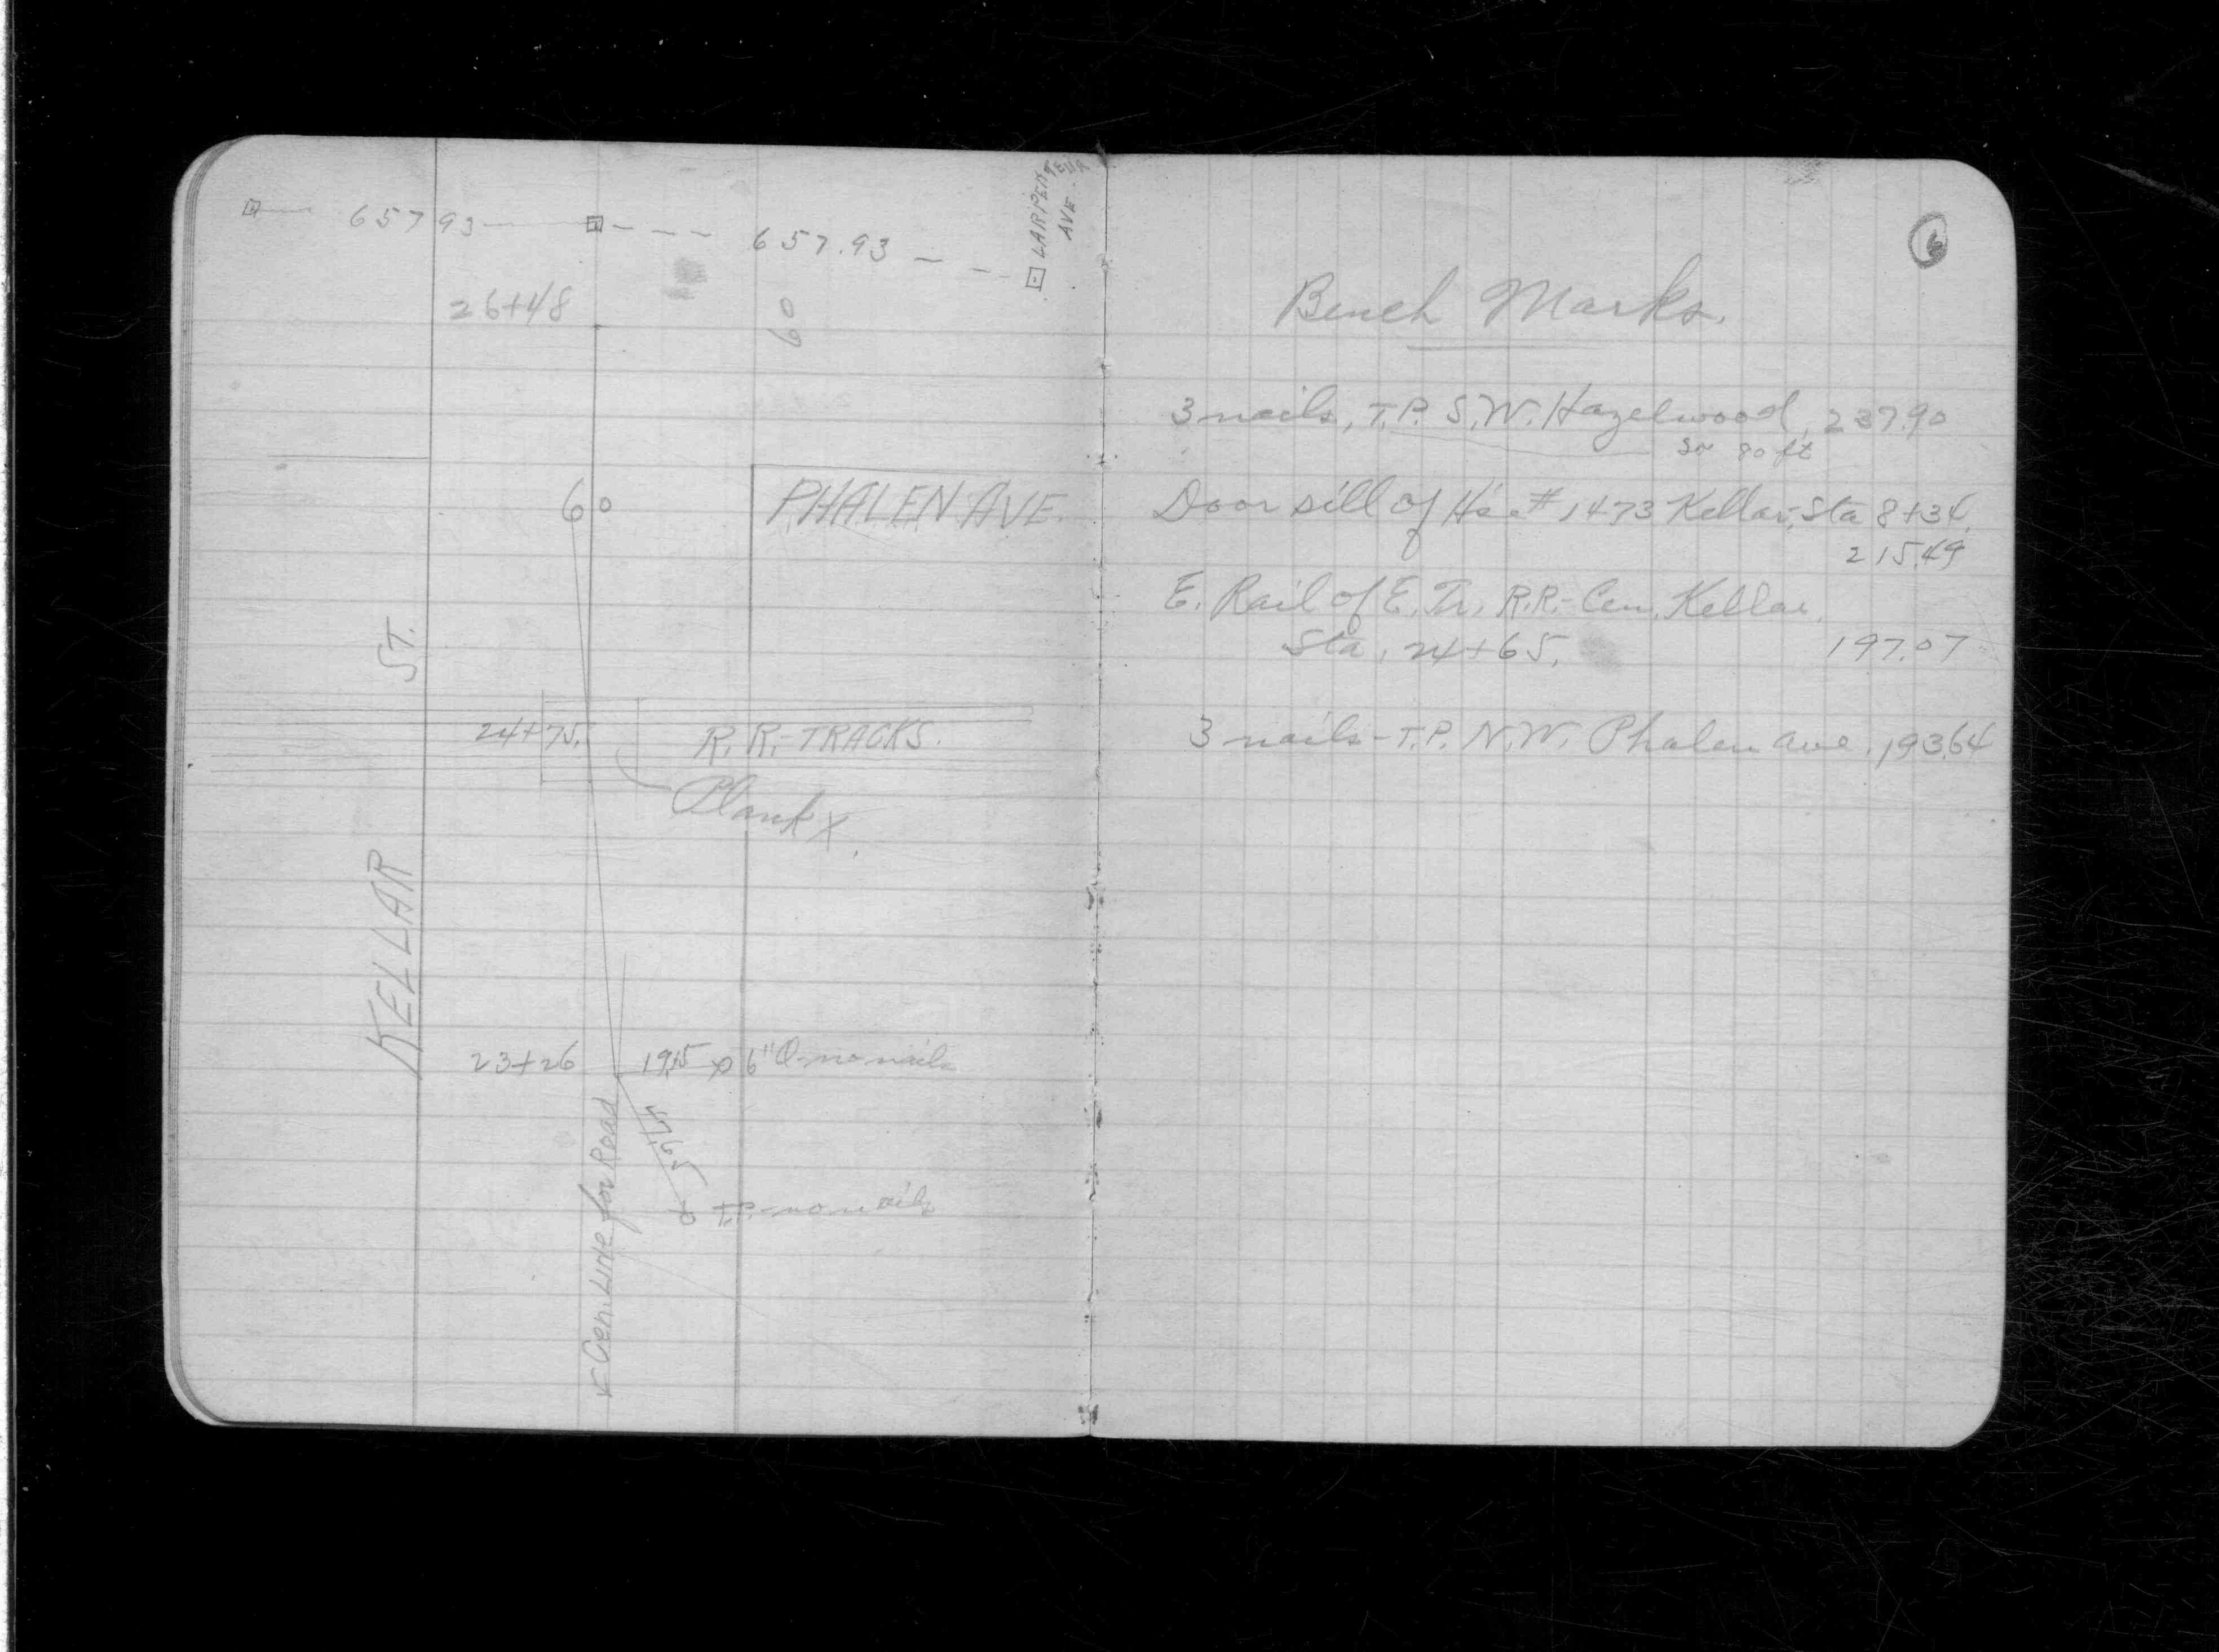 657.93
657.93
LARPENTEUR
AVE.
26+48
60
60
PHALEN AVE.
KELLAR ST.
24+75.
R.R.-TRACKS.
Plank X.
23+26
19.15
6" O-no nails
T.P.-no nails
Cen. Line for Road
6
Bench Marks.
3 nails, T.P. S.W. Hazelwood, 237.90
80 ft
Door sill of Hs # 1473 Kellar, Sta 8+34.
215.49
E. Rail of E. Tr. R.R.- Cen. Kellar.
Sta. 24+65. 197.07
3 nails - T.P. N.W. Phalen Ave. 193.64